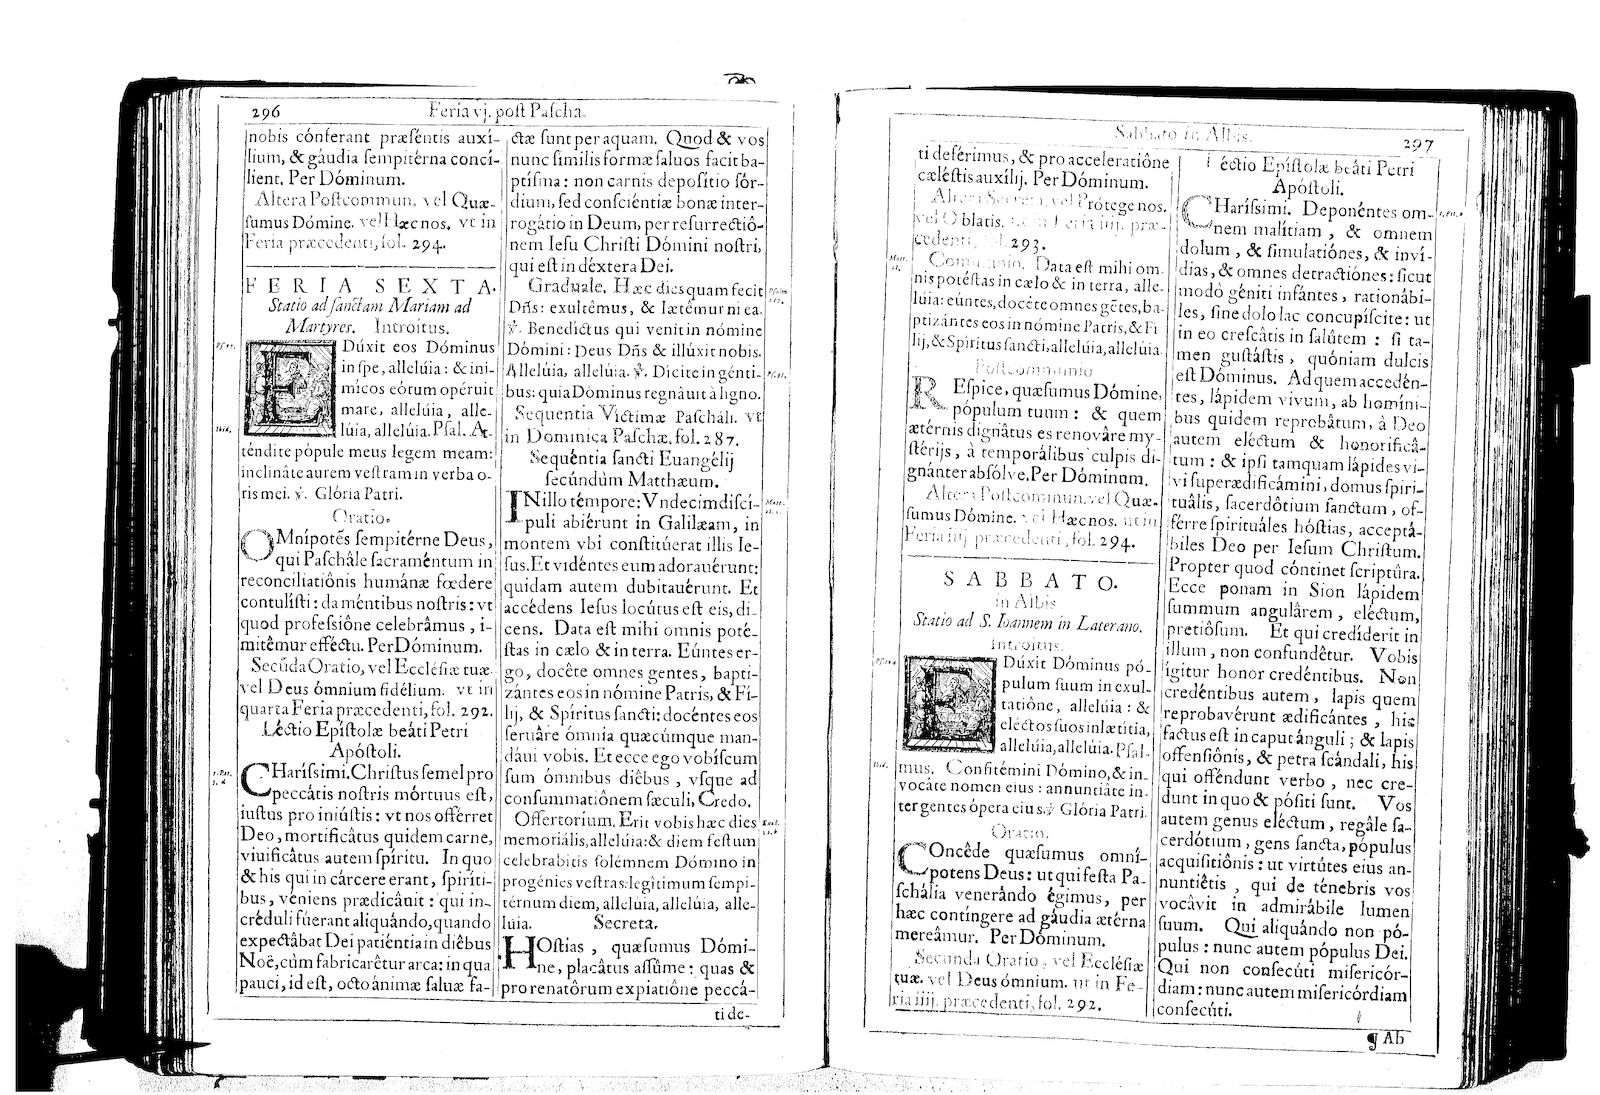 296
Feria vj. post Pascha.
nobis cónferant præséntis auxí-
lium, & gáudia sempitérna concí-
lient. Per Dóminum.
Altera Postcommun. vel Quæ-
sumus Dómine. vel Hæc nos. vt in
Feria præcedenti, fol. 294.
FERIA SEXTA.
Statio ad sanctam Mariam ad
Martyres. Introitus.
EDúxit eos Dóminus
in spe, allelúia: & ini-
mícos eórum opéruit
mare, allelúia, alle-
lúia, allelúia. Psal. At-
téndite pópule meus legem meam:
inclináte aurem vestram in verba o-
ris mei. ℣. Glória Patri.
Oratio.
OMnípotẽs sempitérne Deus,
qui Paschâle sacraméntum in
reconciliatiônis humánæ fœdere
contulísti: da méntibus nostris: vt
quod professiône celebrâmus, i-
mitêmur efféctu. Per Dóminum.
Secũda Oratio, vel Ecclésiæ tuæ.
vel Deus ómnium fidélium. vt in
quarta Feria præcedenti, fol. 292.
Léctio Epístolæ beáti Petri
Apóstoli.
CHaríssimi. Christus semel pro
peccátis nostris mórtuus est,
iustus pro iniústis: vt nos offérret
Deo, mortificâtus quidem carne,
viuificâtus autem spíritu. In quo
& his qui in cárcere erant, spiríti-
bus, véniens prædicâuit: qui in-
créduli fúerant aliquándo, quando
expectâbat Dei patiéntia in diêbus
Noë, cùm fabricarêtur arca: in qua
pauci, id est, octo ánimæ saluæ fa-
ctæ sunt per aquam. Quod & vos
nunc símilis formæ saluos facit ba-
ptísma: non carnis deposítio sór-
dium, sed consciéntiæ bonæ inter-
rogátio in Deum, per resurrectiô-
nem Iesu Christi Dómini nostri,
qui est in déxtera Dei.
Graduale. Hæc dies quam fecit
Dñs: exultêmus, & lætémur in ea.
℣. Benedíctus qui venit in nómine
Dómini: Deus Dñs & illúxit nobis.
Allelúia, allelúia. ℣. Dícite in génti-
bus: quia Dóminus regnâuit à ligno.
Sequentia Víctimæ Pascháli. vt
in Dominica Paschæ, fol. 287.
Sequéntia sancti Euangélij
secúndùm Matthæum.
IN illo témpore: Vndecim discí-
puli abiérunt in Galilæam, in
montem vbi constitúerat illis Ie-
sus. Et vidéntes eum adorauérunt:
quidam autem dubitauérunt. Et
accédens Iesus locútus est eis, di-
cens. Data est mihi omnis poté-
stas in cælo & in terra. Eúntes er-
go, docête omnes gentes, bapti-
zántes eos in nómine Patris, & Fí-
lij, & Spíritus sancti: docéntes eos
seruâre ómnia quæcúmque man-
dáui vobis. Et ecce ego vobíscum
sum ómnibus diêbus, vsque ad
consummatiônem sæculi, Credo.
Offertorium. Erit vobis hæc dies
memoriális, allelúia: & diem festum
celebrabitis solémnem Dómino in
progénies vestras: legítimum sempi-
térnum diem, allelúia, allelúia, alle-
lúia. Secreta.
HOstias, quæsumus Dómi-
ne, placâtus assûme: quas &
pro renatôrum expiatiône peccá-
ti de-
Sabbato in Albis.
297
ti deférimus, & pro acceleratiône
cæléstis auxílij. Per Dóminum.
Altera Secreta, vel Prótege nos.
vel Oblatis. ut in Feria iiij. præ-
cedenti, fol. 293.
Communio. Data est mihi om-
nis potéstas in cælo & in terra, alle-
lúia: eúntes, docéte omnes gẽtes, ba-
ptizántes eos in nómine Patris, & Fi
lij, & Spíritus sancti, allelúia, allelúia.
Postcommunio
REspice, quæsumus Dómine,
pópulum tuum: & quem
ætérnis dignâtus es renovâre my-
stérijs, à temporálibus culpis di-
gnánter absólve. Per Dóminum.
Altera Postcommun. vel Quæ-
sumus Dómine. vel Hæc nos. ut in
Feria iiij præcedenti, fol. 294.
SABBATO.
in Albis
Statio ad S. Ioannem in Laterano.
Introitus.
EDúxit Dóminus pó-
pulum suum in exul-
tatiône, allelúia: &
eléctos suos in lætítia,
allelúia, allelúia. Psal-
mus. Confitémini Dómino, & in-
vocáte nomen eius: annuntiáte in-
ter gentes ópera eius. ℣ Glória Patri.
Oratio.
COncêde quæsumus omní-
potens Deus: ut qui festa Pa-
schália venerándo égimus, per
hæc contíngere ad gáudia ætérna
mereâmur. Per Dóminum.
Secunda Oratio, vel Ecclésiæ
tuæ. vel Deus ómnium. ut in Fe-
ria iiij. præcedenti, fol. 292.
Léctio Epístolæ beáti Petri
Apóstoli.
CHaríssimi. Deponéntes om-
nem malítiam, & omnem
dolum, & simulatiónes, & inví-
dias, & omnes detractiónes: sicut
modò géniti infántes, rationábi-
les, sine dolo lac concupíscite: ut
in eo crescâtis in salûtem: si ta-
men gustástis, quóniam dulcis
est Dóminus. Ad quem accedén-
tes, lápidem vivum, ab homíni-
bus quidem reprobâtum, à Deo
autem eléctum & honorificâ-
tum: & ipsi tamquam lápides vi-
vi superædificámini, domus spiri-
tuâlis, sacerdôtium sanctum, of-
férre spirituâles hóstias, acceptá-
biles Deo per Iesum Christum.
Propter quod cóntinet scriptûra.
Ecce ponam in Sion lápidem
summum angulârem, eléctum,
pretiôsum. Et qui credíderit in
illum, non confundêtur. Vobis
ígitur honor credéntibus. Non
credéntibus autem, lapis quem
reprobavérunt ædificántes, hic
factus est in caput ánguli; & lapis
offensiônis, & petra scándali, his
qui offéndunt verbo, nec cre-
dunt in quo & pósiti sunt. Vos
autem genus eléctum, regâle sa-
cerdótium, gens sancta, pópulus
acquisitiônis: ut virtútes eius an-
nuntiêtis, qui de ténebris vos
vocâvit in admirábile lumen
suum. Qui aliquândo non pó-
pulus: nunc autem pópulus Dei.
Qui non consecúti misericór-
diam: nunc autem misericórdiam
consecúti.
¶ Ab